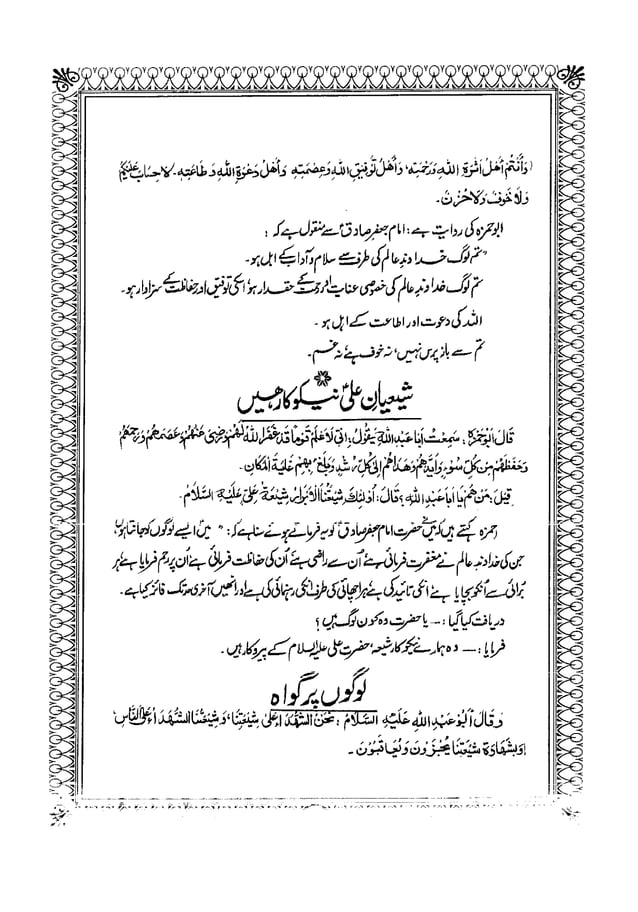 (وَأَنْتُمْ أَهْلُ أَثَرَةِ اللهِ وَرَحْمَتِهِ، وَأَهْلُ تَوْفِيْقِ اللهِ وَعِصْمَتِهِ وَأَهْلُ دَعْوَةِ اللهِ وَطَاعَتِهِ۔ لَاحِسَابَ عَلَيْكُمْ
وَلَا خَوْفَ وَلَاحُزْنَ۔
ابوحمزہ کی روایت ہے: امام جعفر صادقؑ سے منقول ہے کہ:
"تم لوگ خداوند عالم کی طرف سے سلام و آداب کے اہل ہو۔
تم لوگ خداوند عالم کی خصوصی عنایت اور رحمت کے حقدار ہو، اسکی توفیق اور حفاظت کے سزاوار ہو۔
اللہ کی دعوت اور اطاعت کے اہل ہو۔
تم سے باز پرس نہیں، نہ خوف ہے نہ غم۔
شیعیانِ علیؑ نیکوکار ھیں
قَالَ أَبُوْحَمْزَةَ: سَمِعْتُ أَبَا عَبْدِ اللهِ يَقُوْلُ: إِنِّيْ لَأَعْلَمُ قَوْمًا قَدْ غَفَرَ اللهُ لَهُمْ وَرَضِيَ عَنْهُمْ وَعَصَمَهُمْ وَرَحِمَهُمْ
وَحَفِظَهُمْ مِنْ كُلِّ سُوْءٍ وَأَيَّدَهُمْ وَهَدَاهُمْ إِلَى كُلِّ رُشْدٍ وَبَلَغَ بِهِمْ غَايَةَ الْإِمْكَانِ۔
قِيْلَ: مَنْ هُمْ يَا أَبَا عَبْدِ اللهِ؟ قَالَ: أُوْلٰئِكَ شِيْعَتُنَا الْأَبْرَارُ شِيْعَةُ عَلِيٍّ عَلَيْهِ السَّلَامُ
حمزہ کہتے ہیں کہ میں نے حضرت امام جعفر صادقؑ کو یہ فرماتے ہوئے سنا ہے کہ: "میں ایسے لوگوں کو جانتا ہوں
جن کی خداوند عالم نے مغفرت فرمائی ہے، اُن سے راضی ہے، اُن کی حفاظت فرمائی ہے اُن پر رحم فرمایا ہے ہر
بُرائی سے اُنکو بچایا ہے، انکی تائید کی ہے ہر اچھائی کی طرف انکی رہنمائی کی ہے اور انھیں آخری حد تک فائز کیا ہے۔
دریافت کیا گیا: — یا حضرت وہ کون لوگ ہیں؟
فرمایا: — وہ ہمارے نیکوکار شیعہ، حضرت علی علیہ السلام کے پیروکار ہیں۔
لوگوں پر گواہ
وَقَالَ أَبُوْعَبْدِ اللهِ عَلَيْهِ السَّلَامُ: نَحْنُ الشُّهَدَاءُ عَلَىٰ شِيْعَتِنَا، وَشِيْعَتُنَا الشُّهَدَاءُ عَلَى النَّاسِ
وَبِشَهَادَةِ شِيْعَتِنَا يُجْزَوْنَ وَيُعَاقَبُوْنَ۔